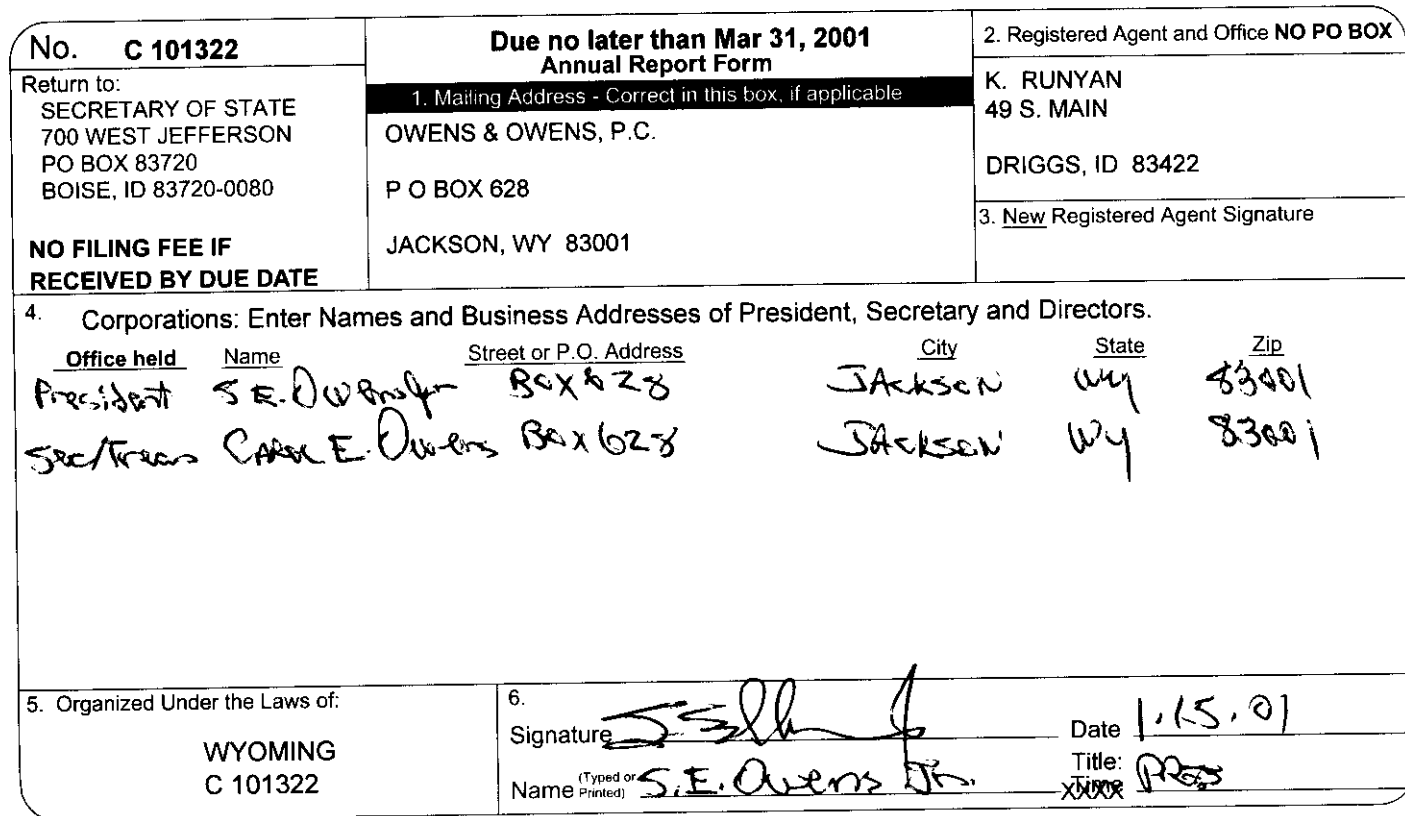 No. C 101322
Return to:
SECRETARY OF STATE
700 WEST JEFFERSON
PO BOX 83720
BOISE, ID 83720-0080
NO FILING FEE IF
RECEIVED BY DUE DATE
Due no later than Mar 31, 2001
Annual Report Form
1. Mailing Address - Correct in this box, if applicable
OWENS & OWENS, P.C.
P O BOX 628
JACKSON, WY 83001
2. Registered Agent and Office NO PO BOX
K. RUNYAN
49 S. MAIN
DRIGGS, ID 83422
3. New Registered Agent Signature
4. Corporations: Enter Names and Business Addresses of President, Secretary and Directors.
Office held Name Street or P.O. Address City State Zip
President S E. Owens Jr Box 628 Jackson Wy 83001
Sec/Treas Carol E. Owens Box 628 Jackson Wy 83001
5. Organized Under the Laws of:
WYOMING
C 101322
6.
Signature
Date 1.15.01
Name (Typed or Printed) S.E. Owens Jr.
Title: Pres